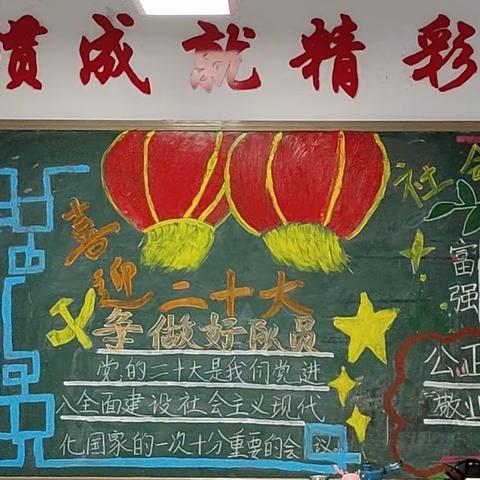 惯成就精彩
喜迎二十大
争做好队员
党的二十大是我们党进
入全面建设社会主义现代
化国家的一次十分重要的会议。
社会
富强
公正
敬业